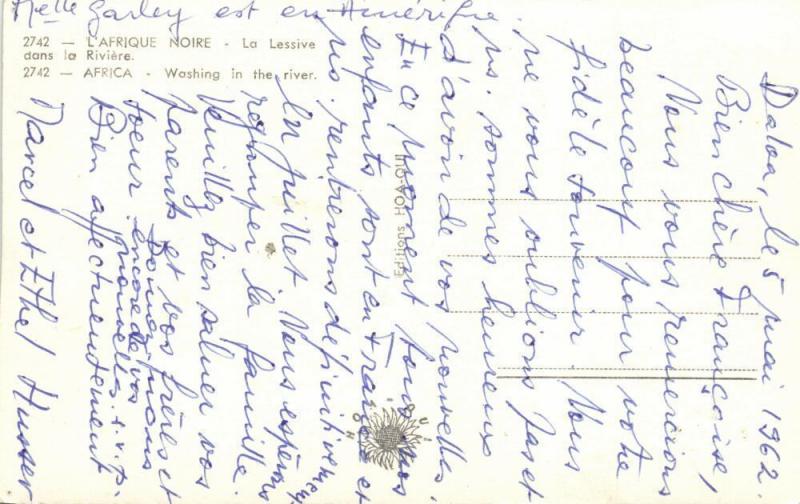 Melle Garley est en Amérique.
2742 — L'AFRIQUE NOIRE - La Lessive
dans la Rivière.
2742 — AFRICA - Washing in the river.
Editions HOA-QUI
HOA QUI
Daloa, le 5 mai 1962
Bien chère Françoise,
Nous vous remercions
beaucoup pour votre
fidèle souvenir. Nous
ne vous oublions pas et
ns. sommes heureux
d'avoir de vos nouvelles.
En ce moment tous nos
enfants sont en France et
ns. rentrerons définitivement
en juillet. Nous espérons
regrouper la famille.
Veuillez bien saluer vos
parents et vos frères et
soeur. Donnez nous
encore de vos
nouvelles s.v.p.
Bien affectueusement
Marcel et Ethel Husser